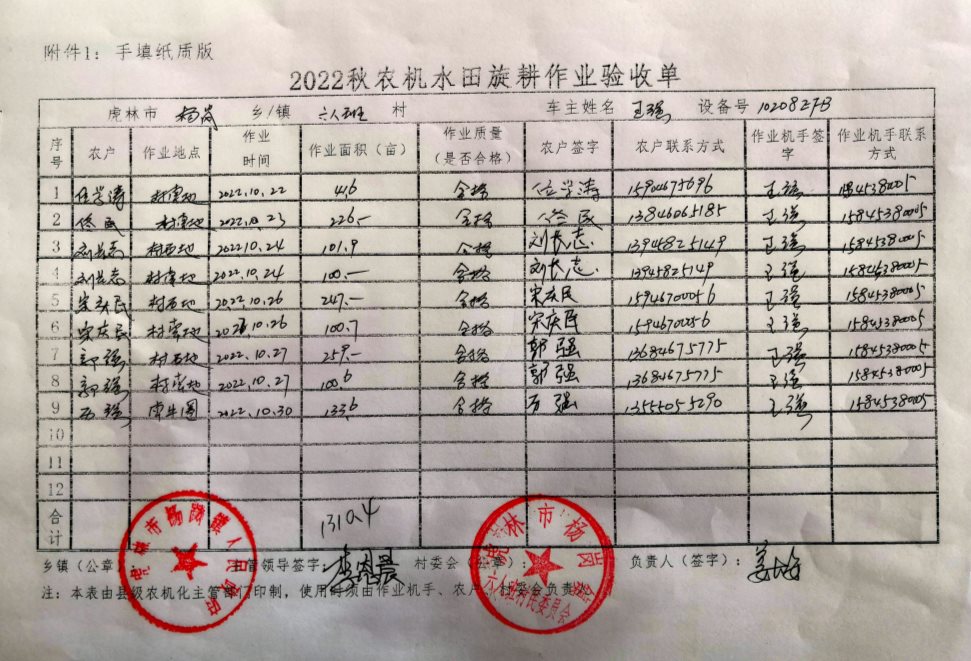 附件1：手填纸质版
2022秋农机水田旋耕作业验收单
虎林市 杨岗 乡/镇 六人班 村 车主姓名 王强 设备号
序号 农户 作业地点 作业时间 作业面积（亩） 作业质量（是否合格） 农户签字 农户联系方式 作业机手签字 作业机手联系方式
1 任学涛 2022.10.22 41.6 合格 任学涛 15904675696 王强
2 佟民 2022.10.23 226.- 合格 佟民 13846065185 王强 15845380005
3 刘长志 村西地 2022.10.24 101.9 合格 刘长志 13945825149 王强 15845380005
4 刘长志 2022.10.24 100.- 合格 刘长志 13945825149 王强 15845380005
5 宋庆民 村西地 2022.10.26 247.- 合格 宋庆民 15946700056 王强 15845380005
6 宋庆民 2022.10.26 100.7 合格 宋庆民 15946700056 王强 15845380005
7 郭强 村西地 2022.10.27 259.- 合格 郭强 13684675775 王强 15845380005
8 郭强 2022.10.27 100.6 合格 郭强 13684675775 王强 15845380005
9 万强 2022.10.30 133.6 合格 万强 13555055290 王强 15845380005
10
11
12
合计 1310.4
乡镇（公章）： 管领导签字： 村委会（公章）： 负责人（签字）：
注：本表由县级农机化主管部门印制，使用时须由作业机手、农户、村委会负责